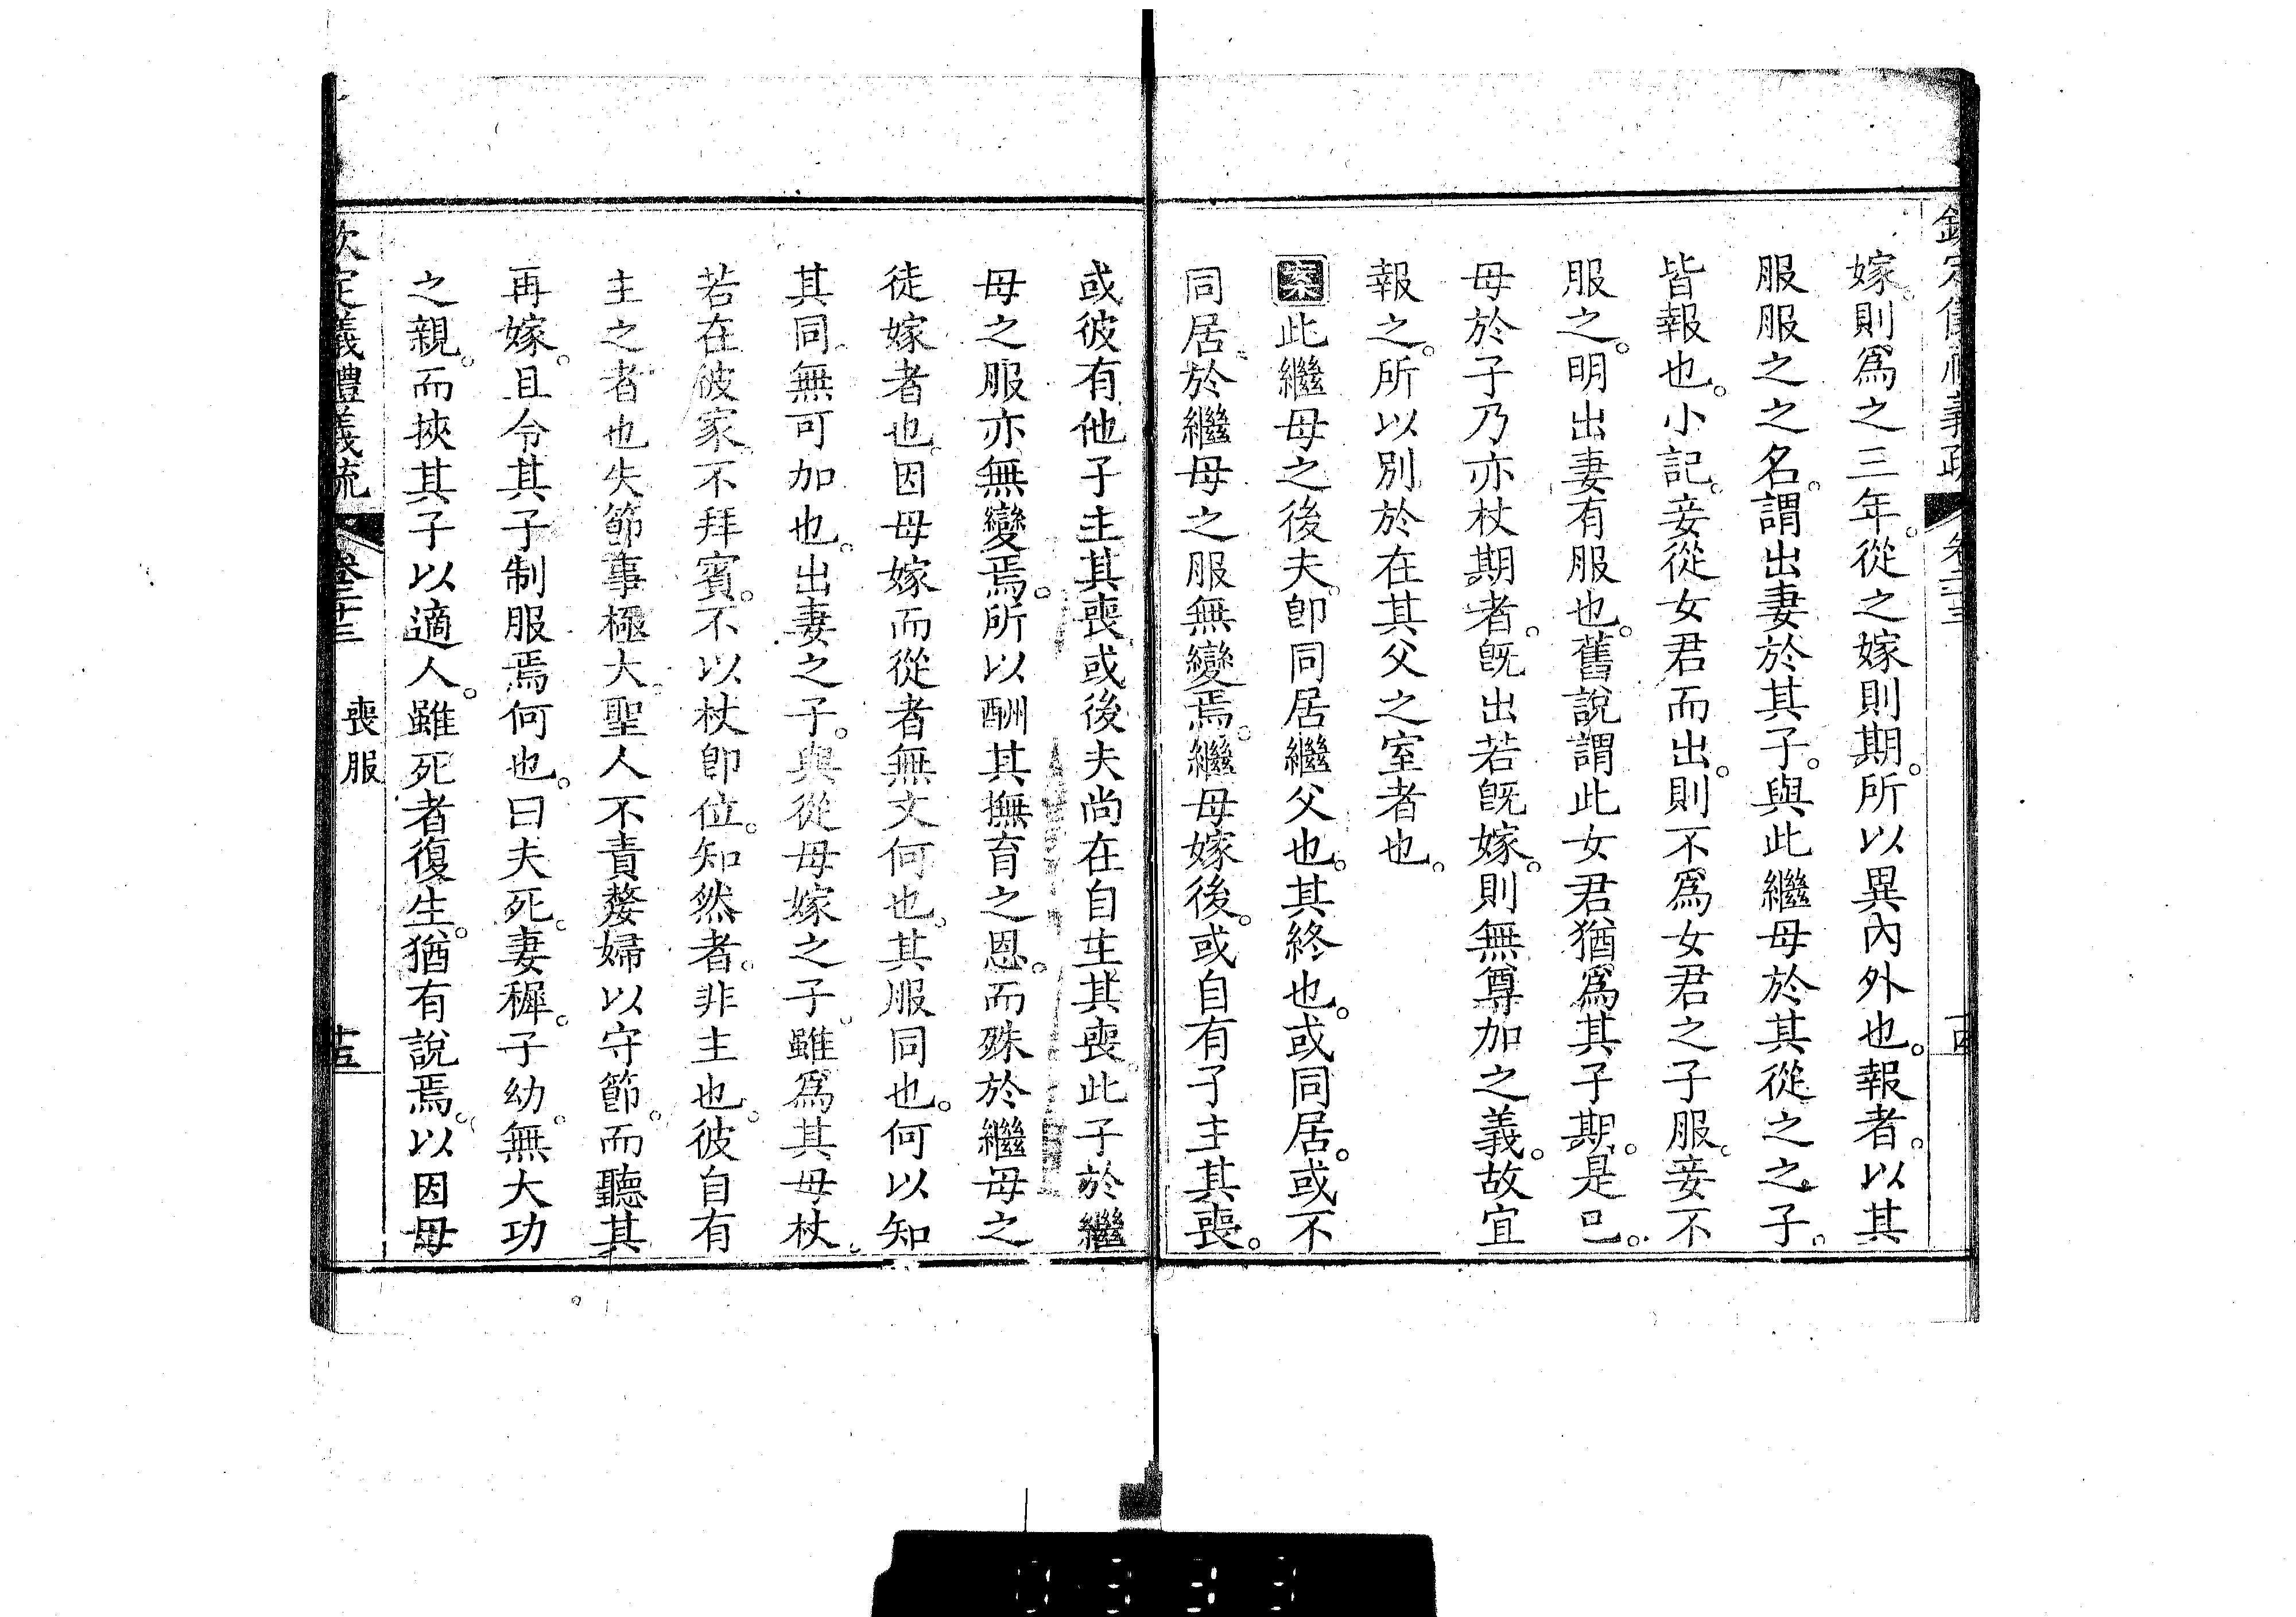 嫁則爲之三年。從之嫁則期。所以異內外也。報者。以其
服服之之名。謂出妻於其子。與此繼母於其從之之子。
皆報也。小記。妾從女君而出。則不爲女君之子服。妾不
服之。明出妻有服也。舊說謂此女君猶爲其子期。是已。
母於子乃亦杖期者。旣出若旣嫁。則無尊加之義。故宜
報之。所以別於在其父之室者也。
案此繼母之後夫。卽同居繼父也。其終也。或同居。或不
同居。於繼母之服無變焉。繼母嫁後。或自有子主其喪。
或彼有他子主其喪。或後夫尚在自主其喪。此子於繼
母之服亦無變焉。所以酬其撫育之恩。而殊於繼母之
徒嫁者也。因母嫁而從者無文何也。其服同也。何以知
其同。無可加也。出妻之子。與從母嫁之子。雖爲其母杖。
若在彼家。不拜賓。不以杖卽位。知然者。非主也。彼自有
主之者也。失節事極大。聖人不責嫠婦以守節。而聽其
再嫁。且令其子制服焉何也。曰夫死。妻穉。子幼。無大功
之親。而挾其子以適人。雖死者復生。猶有說焉。以因母
欽定儀禮義疏 卷二十三 喪服 十五